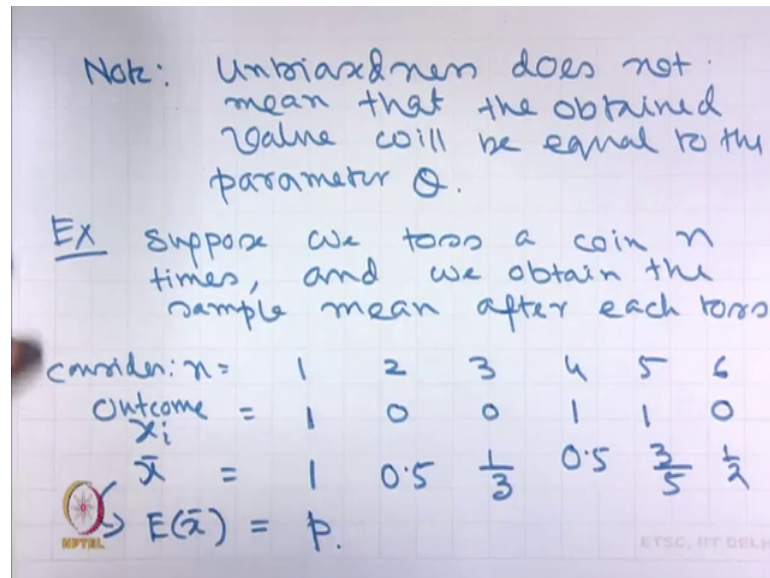 Note: Unbiasedness does not
mean that the obtained
value will be equal to the
parameter θ.
Ex Suppose we toss a coin n
times, and we obtain the
sample mean after each toss
Consider: n = 1 2 3 4 5 6
Outcome xᵢ = 1 0 0 1 1 0
x̄ = 1 0.5 1/3 0.5 3/5 1/2
→ E(x̄) = p.
NPTEL
ETSC, IIT DELH